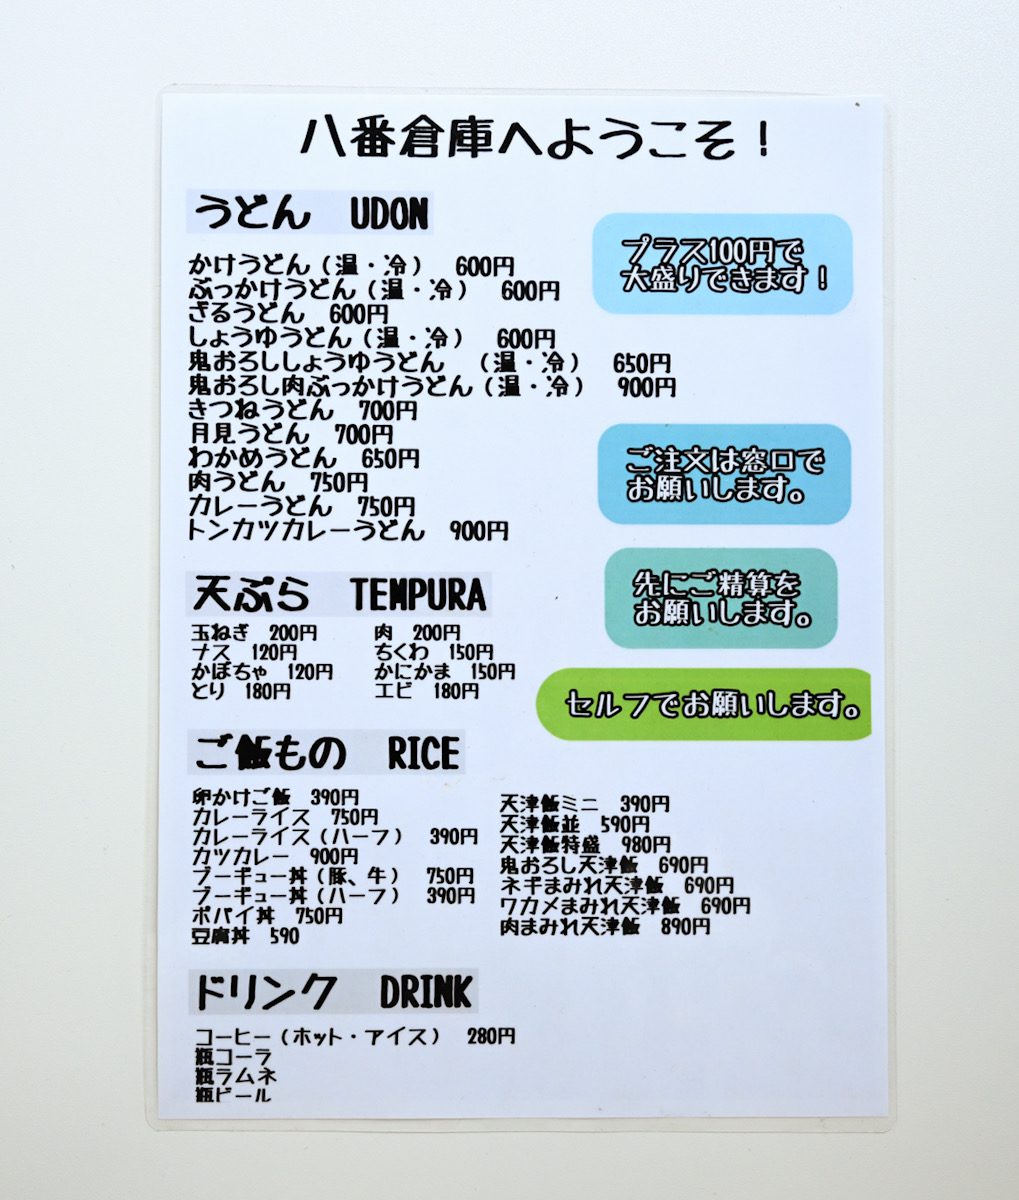 八番倉庫へようこそ！
うどん　UDON
かけうどん（温・冷）　600円
ぶっかけうどん（温・冷）　600円
ざるうどん　600円
しょうゆうどん（温・冷）　600円
鬼おろししょうゆうどん　（温・冷）　650円
鬼おろし肉ぶっかけうどん（温・冷）　900円
きつねうどん　700円
月見うどん　700円
わかめうどん　650円
肉うどん　750円
カレーうどん　750円
トンカツカレーうどん　900円
プラス100円で
大盛りできます！
ご注文は窓口で
お願いします。
先にご精算を
お願いします。
セルフでお願いします。
天ぷら　TEMPURA
玉ねぎ　200円
ナス　120円
かぼちゃ　120円
とり　180円
肉　200円
ちくわ　150円
かにかま　150円
エビ　180円
ご飯もの　RICE
卵かけご飯　390円
カレーライス　750円
カレーライス（ハーフ）　390円
カツカレー　900円
ブーギュー丼（豚、牛）　750円
ブーギュー丼（ハーフ）　390円
ポパイ丼　750円
豆腐丼　590
天津飯ミニ　390円
天津飯並　590円
天津飯特盛　980円
鬼おろし天津飯　690円
ネギまみれ天津飯　690円
ワカメまみれ天津飯　690円
肉まみれ天津飯　890円
ドリンク　DRINK
コーヒー（ホット・アイス）　280円
瓶コーラ
瓶ラムネ
瓶ビール